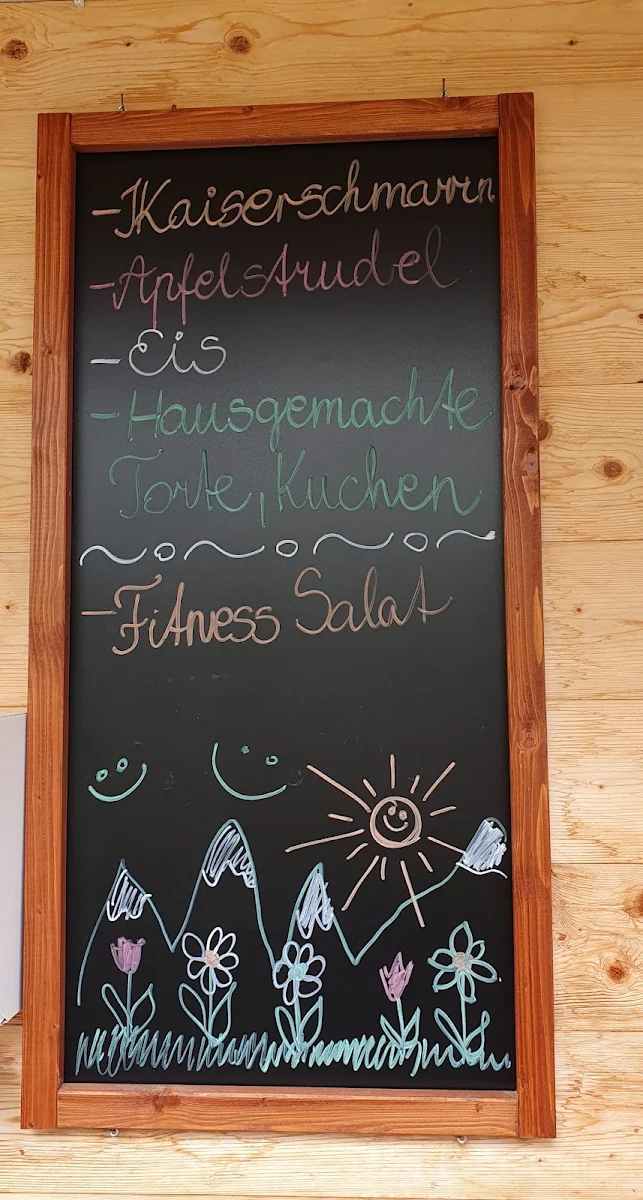 -Kaiserschmarrn
-Apfelstrudel
-Eis
-Hausgemachte
Torte, Kuchen
-Fitness Salat